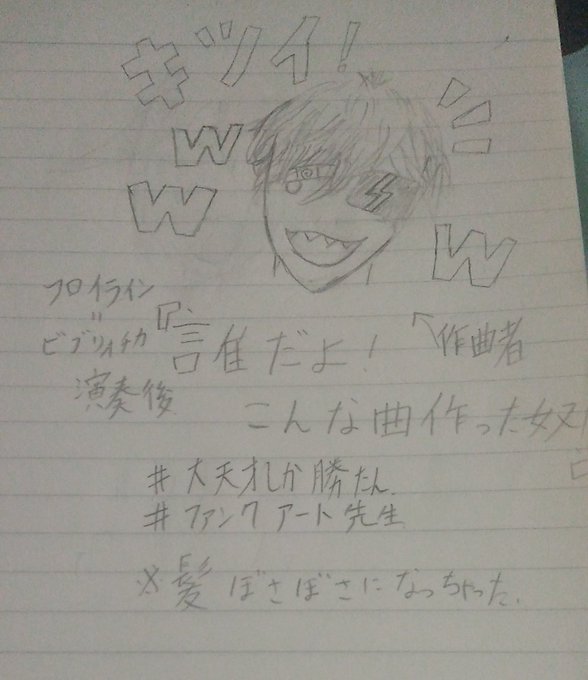 キツイ!
w
w
w
フロイライン
=
ビブリォチカ
演奏後
『誰だよ!
←作曲者
こんな曲作った奴
#大天才しか勝たん.
#ファンクアート先生
※髪ぼさぼさになっちゃった.